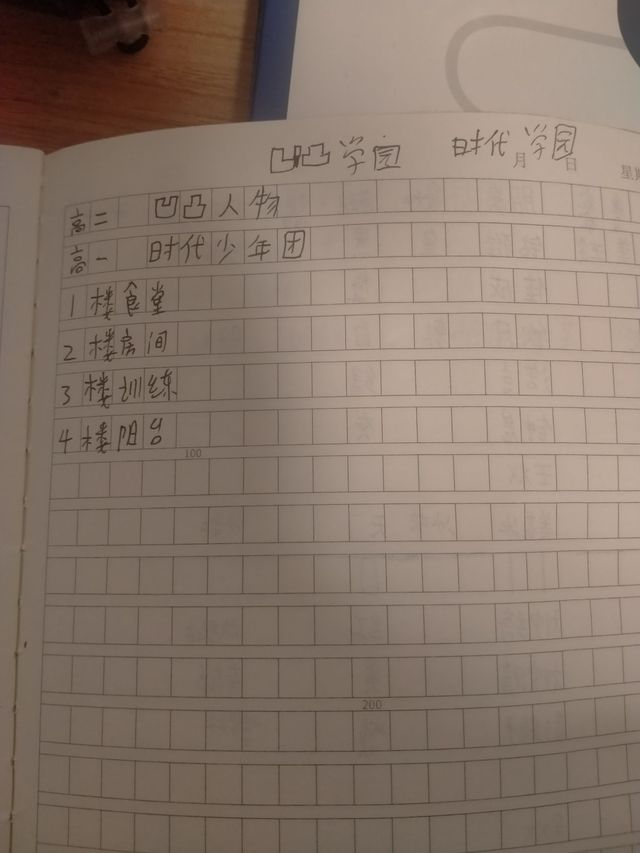 凹凸学园 时代学园
月 日 星期
高二 凹凸人物
高一 时代少年团
1楼食堂
2楼房间
3楼训练
4楼阳台
100
200